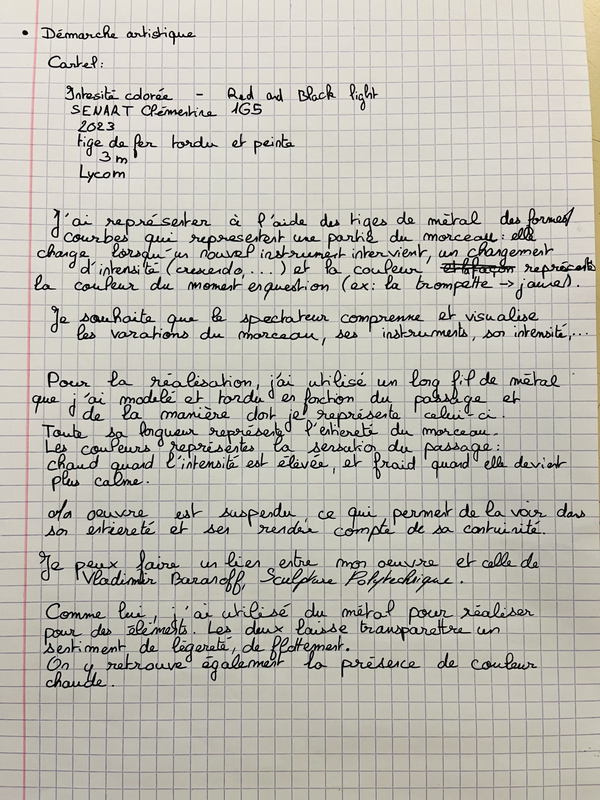 • Démarche artistique
Cartel:
Intesité colorée - Red and Black light
SENART Clémentine 1G5
2023
tige de fer tordu et peinte
3 m
Lycom
J'ai représenter à l'aide des tiges de métal des formes
courbes qui representent une partie du morceau: elle
change lorsqu'un nouvel instrument intervient, un changement
d'intensité (crescendo, ...) et la couleur représente
la couleur du moment enquestion (ex: la trompette → jaune).
Je souhaite que le spectateur comprenne et visualise
les varations du marceau, ses instruments, son intensité,...
Pour la réalisation, j'ai utilisé un long fil de métal
que j'ai modelé et tordu en fonction du passage et
de la manière dont je représente celui-ci.
Toute sa longueur représente l'entiereté du morceau.
Les couleurs représentes la sensation du passage:
chaud quand l'intensité est élévée, et fraid quand elle devient
plus calme.
oeuvre est suspendu ce qui permert de la voir dans
son entiereté et s'en rendre compte de sa contuinité.
Je peux faire un lien entre mon oeuvre et celle de
Vladimir Baranoff, Sculpture Polytechnique.
Comme lui, j'ai utilisé du métal pour réaliser
pour des éléments. Les deux laisse transparettre un
sentiment de légereté, de flottement.
On y retrouve également la présence de couleur
chaude.